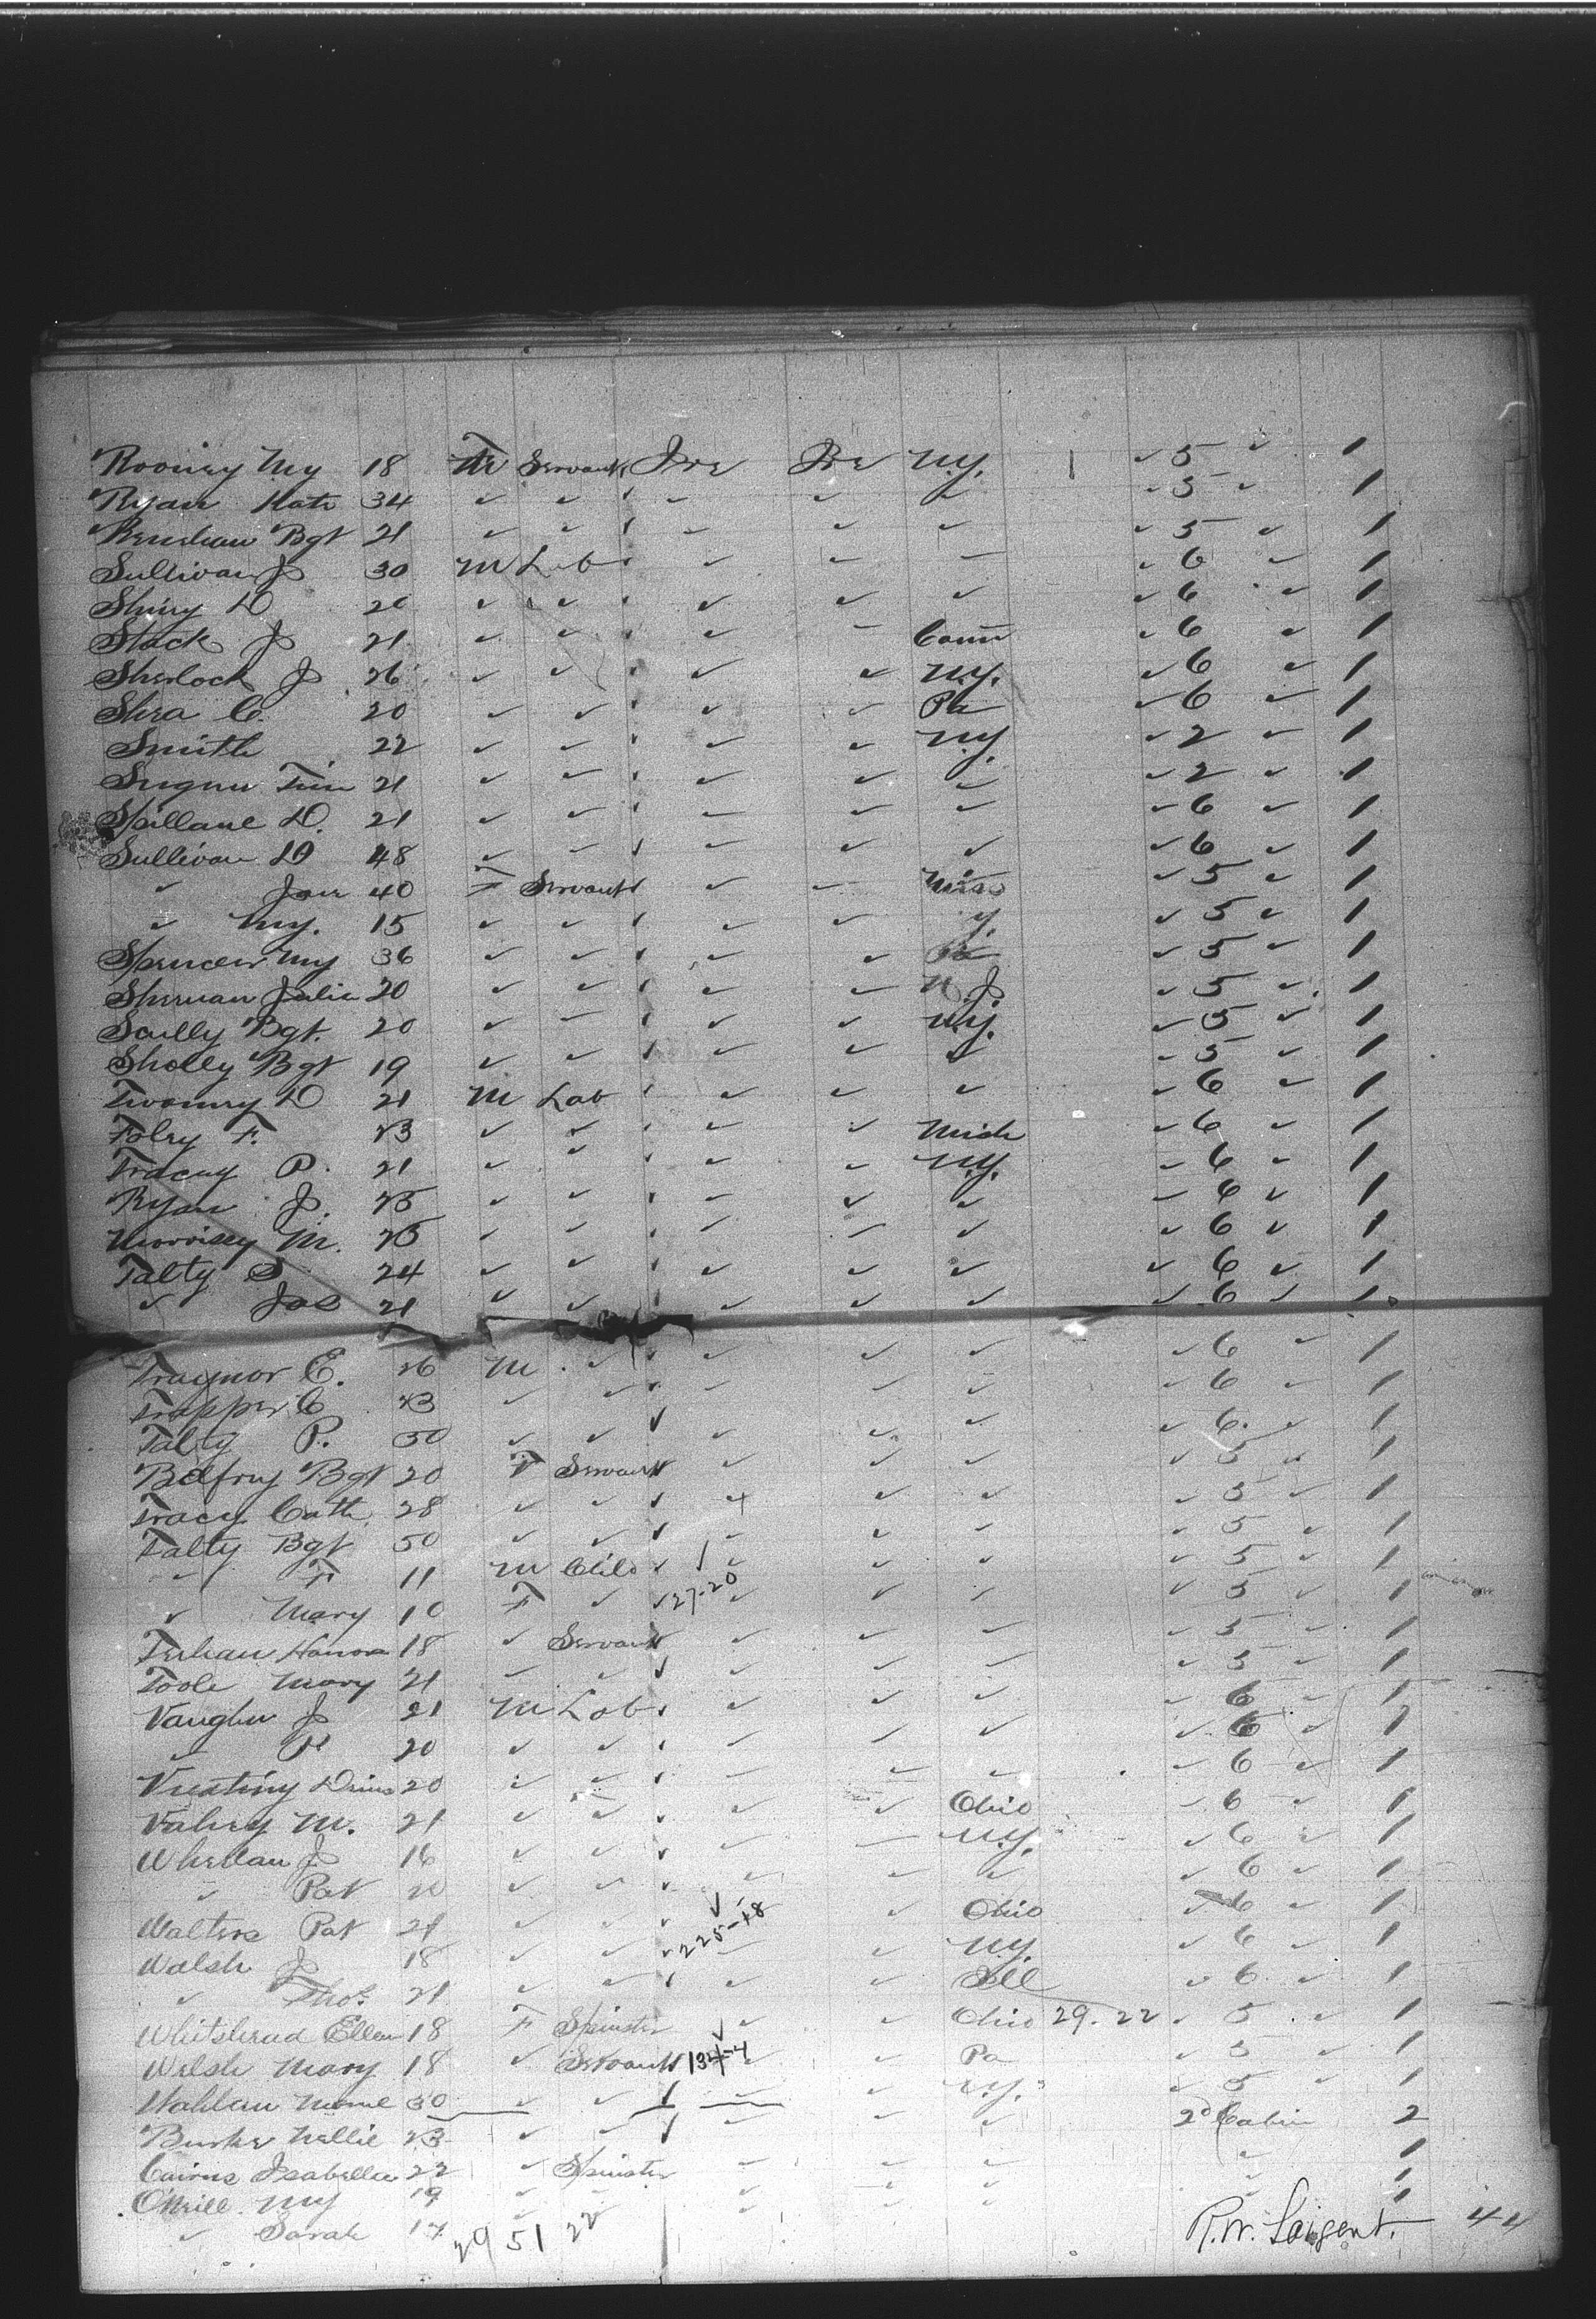 Rooney My 18 F Servant Ire Ire N.Y. 1 ✓ 5 ✓ 1
Ryan Kate 34 ✓ ✓ ✓ ✓ ✓ ✓ ✓ 5 ✓ 1
Bgt 21 ✓ ✓ ✓ ✓ ✓ ✓ ✓ 5 ✓ 1
Sullivan J 30 M Lab ✓ ✓ ✓ ✓ 6 ✓ 1
D ✓ ✓ ✓ ✓ ✓ ✓ ✓ 6 ✓ 1
Stack J 21 ✓ ✓ ✓ ✓ ✓ Conn ✓ 6 ✓ 1
Sherlock J 26 ✓ ✓ ✓ ✓ ✓ N.Y. ✓ 6 ✓ 1
Shea C. 20 ✓ ✓ ✓ ✓ ✓ Pa ✓ 6 ✓ 1
Smith 22 ✓ ✓ ✓ ✓ ✓ N.Y. ✓ 2 ✓ 1
Tim 21 ✓ ✓ ✓ ✓ ✓ ✓ ✓ 2 ✓ 1
Spillane D. 21 ✓ ✓ ✓ ✓ ✓ ✓ ✓ 6 ✓ 1
Sullivan D 48 ✓ ✓ ✓ ✓ ✓ ✓ ✓ 6 ✓ 1
✓ 40 F Servant ✓ ✓ ✓ 5 ✓ 1
✓ My. 15 ✓ ✓ ✓ ✓ ✓ ✓ 5 ✓ 1
Spencer My 36 ✓ ✓ ✓ ✓ ✓ Pa ✓ 5 ✓ 1
Sheruan Julia 20 ✓ ✓ ✓ ✓ ✓ N.J. ✓ 5 ✓ 1
Scully Bgt. 20 ✓ ✓ ✓ ✓ ✓ N.Y. ✓ 5 ✓ 1
Sholly Bgt 19 ✓ ✓ ✓ ✓ ✓ ✓ ✓ 5 ✓ 1
Twomey D 21 M Lab ✓ ✓ ✓ ✓ ✓ 6 ✓ 1
Foley F. 23 ✓ ✓ ✓ ✓ ✓ Mich ✓ 6 ✓ 1
Tracey P. 21 ✓ ✓ ✓ ✓ ✓ N.Y. ✓ 6 ✓ 1
Ryan J. 25 ✓ ✓ ✓ ✓ ✓ ✓ ✓ 6 ✓ 1
Morrissy M. 25 ✓ ✓ ✓ ✓ ✓ ✓ ✓ 6 ✓ 1
Talty S 24 ✓ ✓ ✓ ✓ ✓ ✓ ✓ 6 ✓ 1
✓ Jas 21 ✓ ✓ ✓ ✓ ✓ ✓ ✓ 6 ✓ 1
Traynor E. 26 M ✓ ✓ ✓ ✓ ✓ ✓ 6 ✓ 1
Trapper C 23 ✓ ✓ ✓ ✓ ✓ ✓ ✓ 6 ✓ 1
Talty P. 50 ✓ ✓ ✓ ✓ ✓ ✓ ✓ 6 ✓ 1
Belfry Bgt 20 F Servant ✓ ✓ ✓ ✓ 5 ✓ 1
Tracy Cath. 28 ✓ ✓ ✓ ✓ ✓ ✓ ✓ 5 ✓ 1
Talty Bgt 50 ✓ ✓ ✓ ✓ ✓ ✓ ✓ 5 ✓ 1
✓ F 11 M Child ✓ ✓ ✓ ✓ ✓ 5 ✓ 1
✓ Mary 10 F ✓ ✓ 27-20 ✓ ✓ ✓ ✓ 5 ✓ 1
Honora 18 ✓ Servant ✓ ✓ ✓ ✓ 5 ✓ 1
Toole Mary 21 ✓ ✓ ✓ ✓ ✓ ✓ ✓ 5 ✓ 1
Vaughn J 21 M Lab ✓ ✓ ✓ ✓ ✓ 6 ✓ 1
✓ P 20 ✓ ✓ ✓ ✓ ✓ ✓ ✓ 6 ✓ 1
20 ✓ ✓ ✓ ✓ ✓ ✓ ✓ 6 ✓ 1
Vahey M. 21 ✓ ✓ ✓ ✓ ✓ Ohio ✓ 6 ✓ 1
Whelan J 16 ✓ ✓ ✓ ✓ ✓ N.Y. ✓ 6 ✓ 1
✓ Pat ✓ ✓ ✓ ✓ ✓ ✓ ✓ 6 ✓ 1
Walters Pat 21 ✓ ✓ ✓ ✓ ✓ Ohio ✓ 6 ✓ 1
Walsh J 18 ✓ ✓ ✓ 225-18 ✓ ✓ N.Y. ✓ 6 ✓ 1
✓ Thos 21 ✓ ✓ ✓ ✓ ✓ Ill ✓ 6 ✓ 1
Whitehead Ellen 18 F Spinster ✓ ✓ ✓ Ohio 29-22 ✓ 5 ✓ 1
Welsh Mary 18 ✓ Servant 134-4 ✓ ✓ Pa ✓ 5 ✓ 1
30 ✓ ✓ ✓ ✓ ✓ N.Y. ✓ 5 ✓ 1
Burke Nellie 23 ✓ ✓ ✓ 2d Cabin 2
Cairns Isabella 22 ✓ Spinster ✓ ✓ ✓ ✓ 1
O'Neill My 19 ✓ ✓ ✓ ✓ ✓ ✓ 1
✓ Sarah 17 ✓ ✓ ✓ ✓ ✓ 1
29 51 22
R.W. Sargent. 44